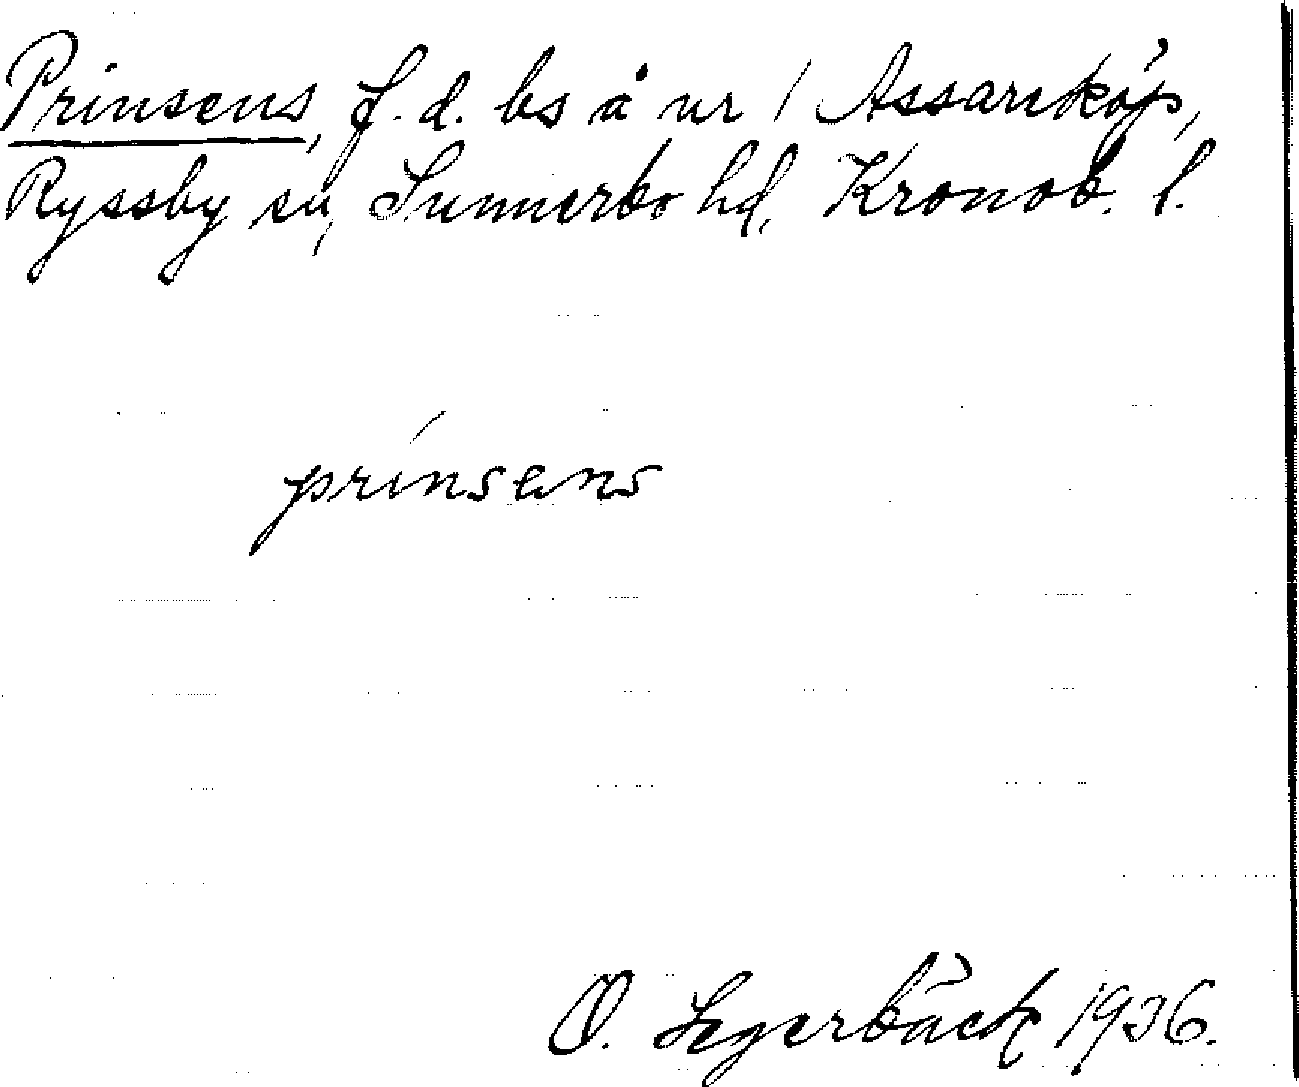 Prinsens, f.d. bs å nr 1 Assarsköp,
Ryssby sn, Sunnerbo hd, Kronob. l.
prinsens
O. Segerbäck 1936.